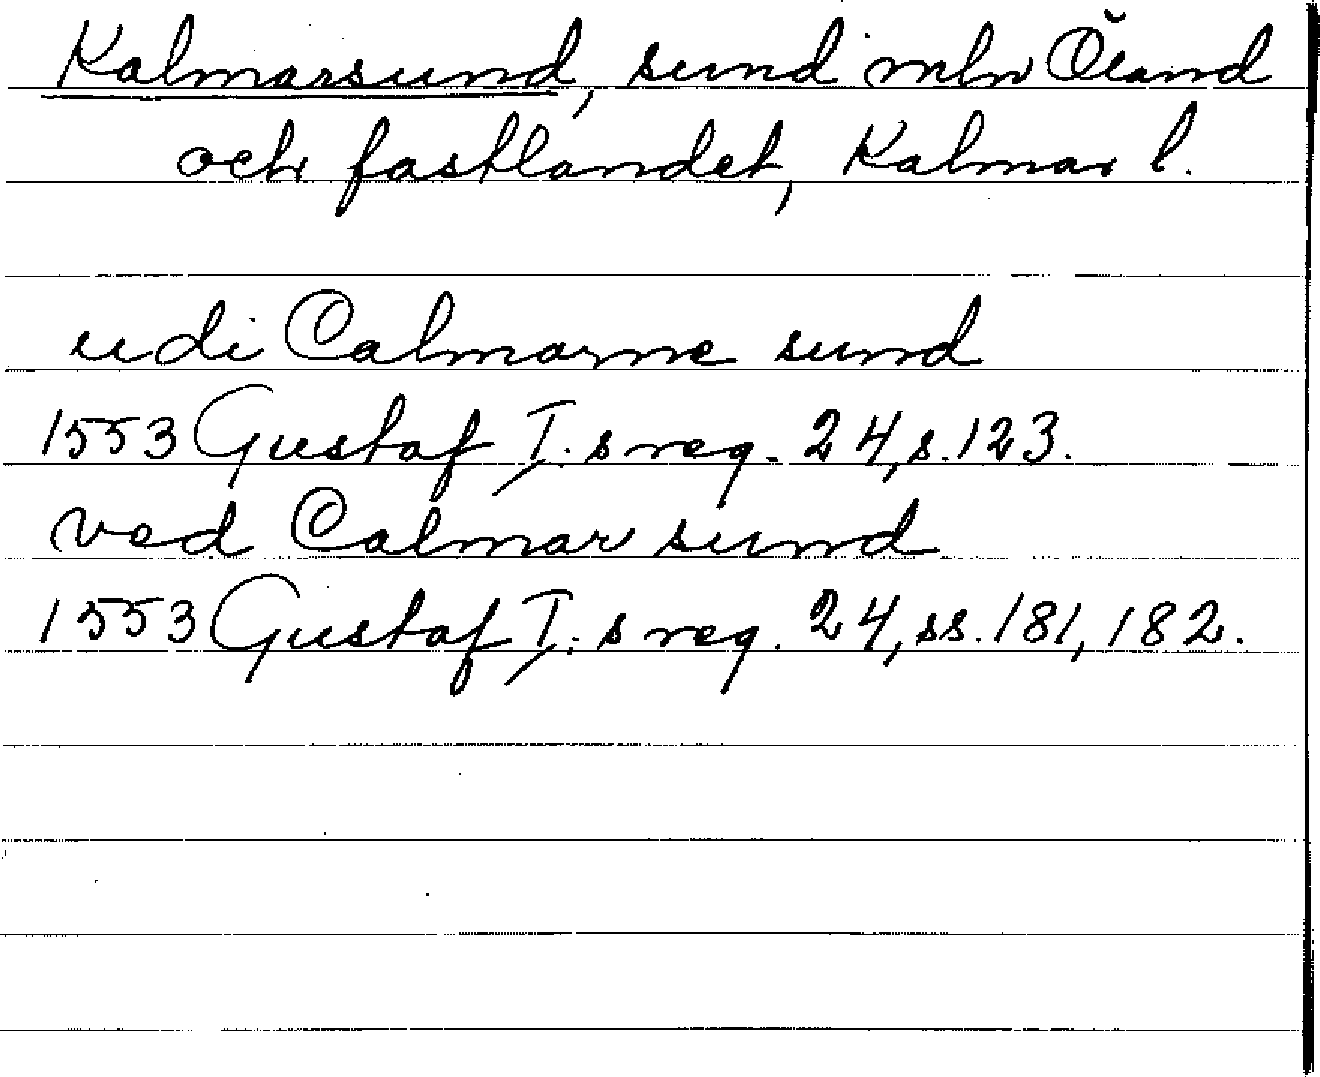 Kalmarsund, sund mln Öland
och fastlandet, Kalmar l.
udi Calmarne sund
1553 Gustaf I:s reg. 24, s. 123.
ved Calmar sund
1553 Gustaf I:s reg. 24, ss. 181, 182.